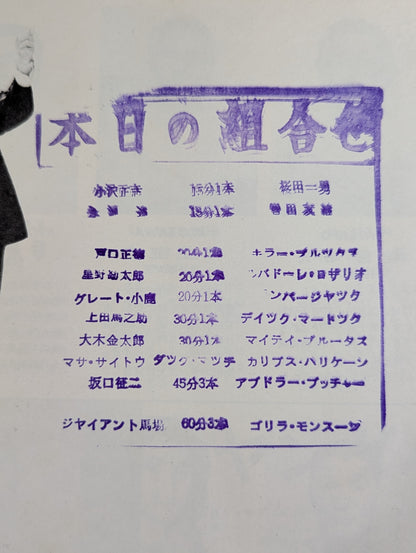 本日の組合せ
小沢正志 15分1本 桜田一男
15分1本
戸口正徳 20分1本 キラー・ブルックス
星野勘太郎 20分1本 ロザリオ
グレート・小鹿 20分1本
上田馬之助 30分1本 デイック・マードック
大木金太郎 30分1本 マイテイ・ブルータス
マサ・サイトウ タッグ・マッチ カリプス・ハリケーン
坂口征二 45分3本 アブドラー・ブッチャー
ジャイアント馬場 60分3本 ゴリラ・モンスーン